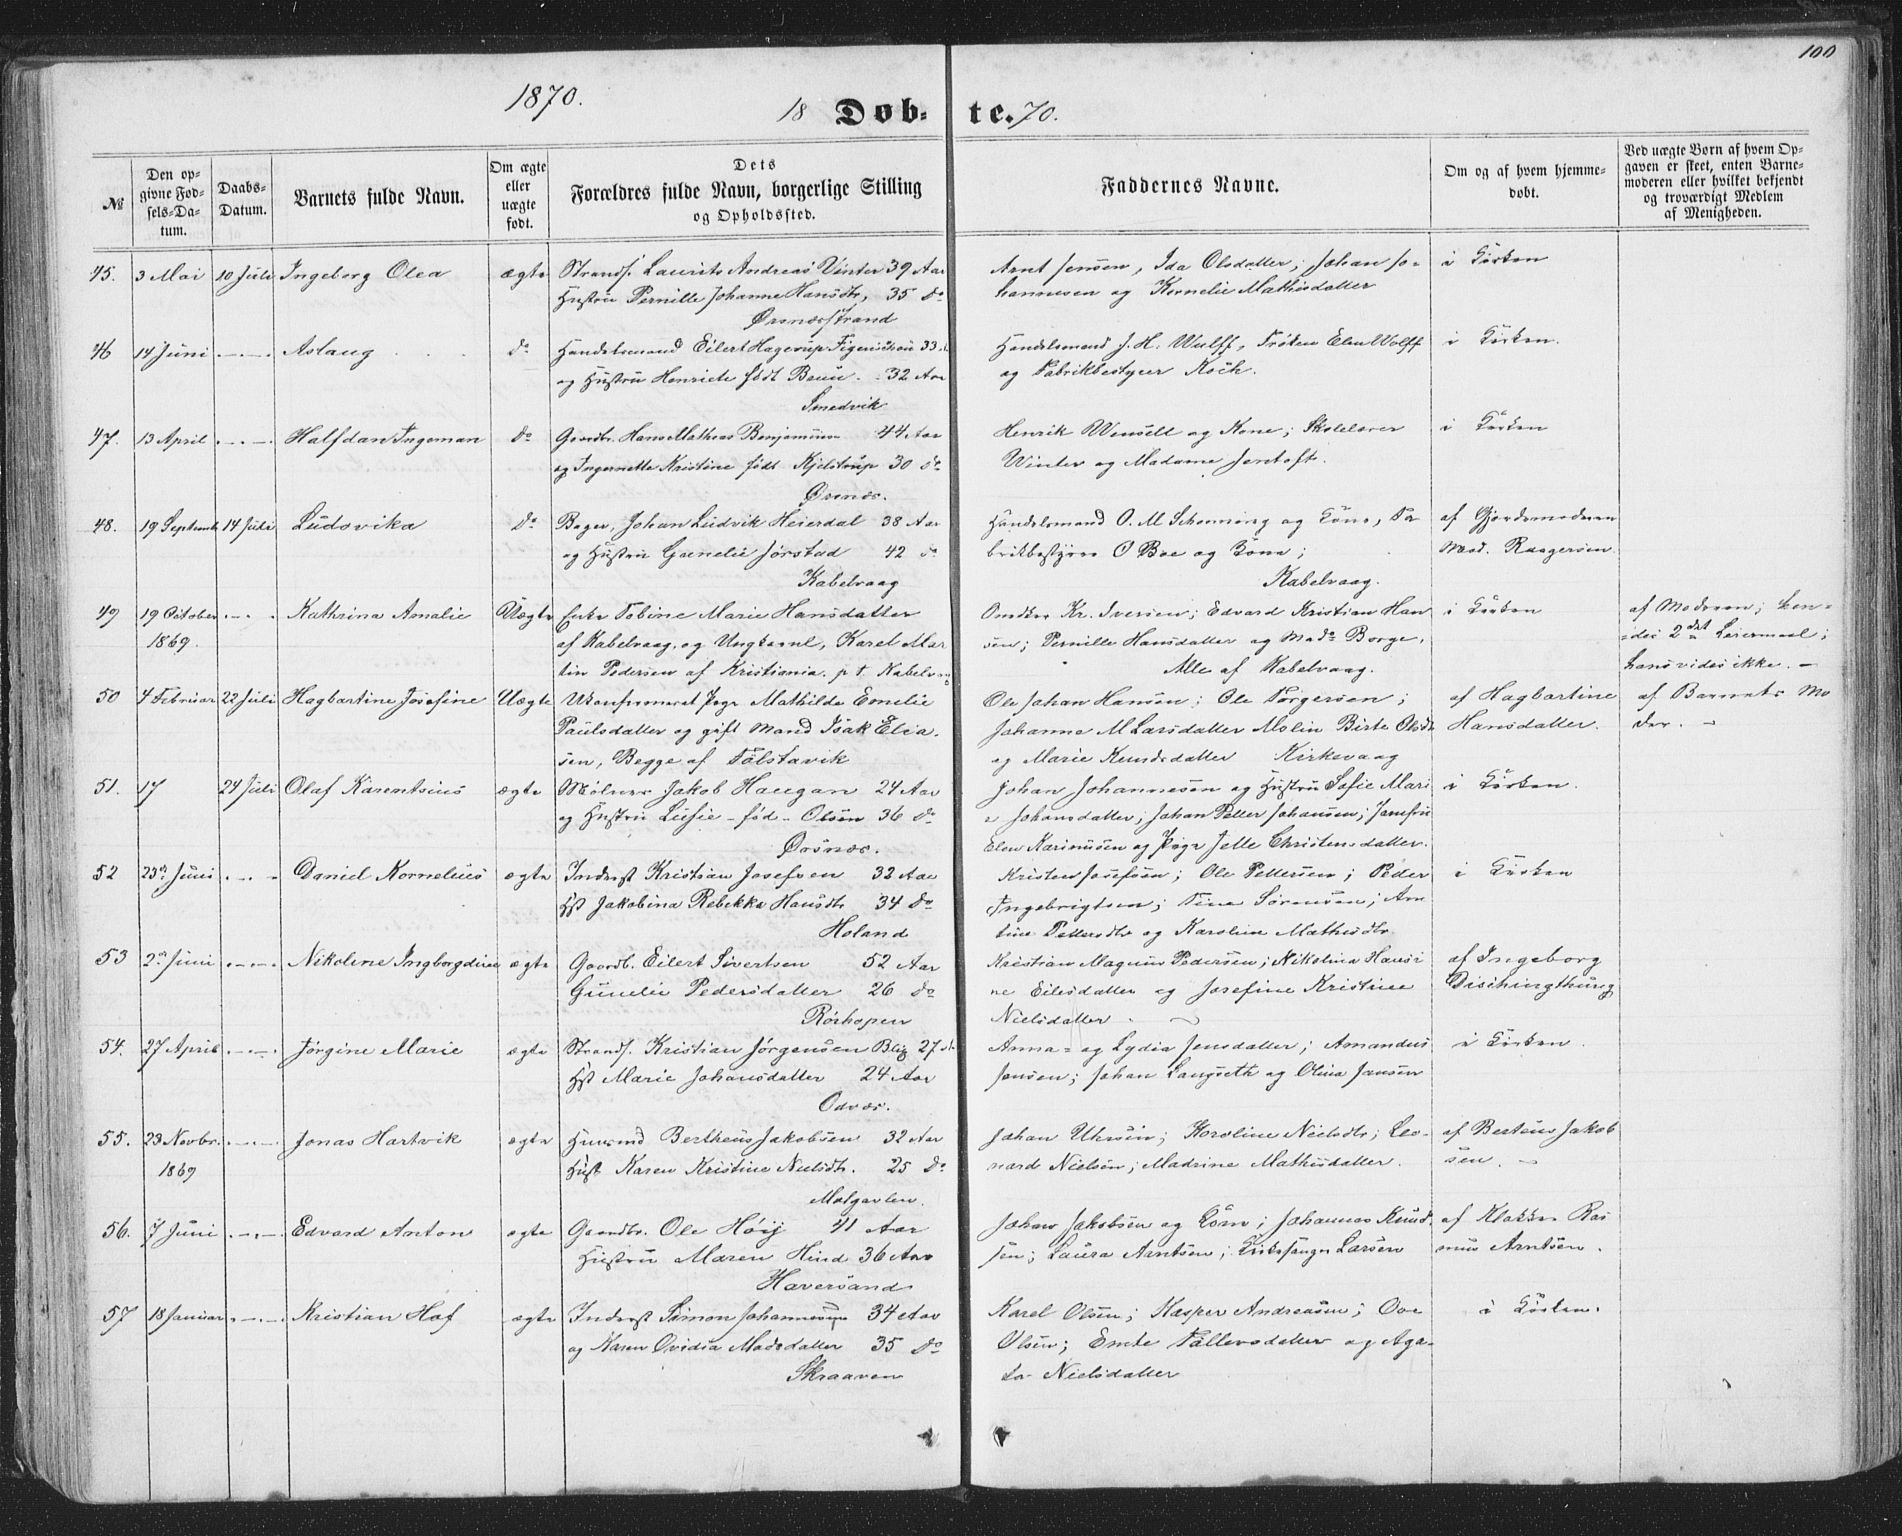 100
1870.
18 Døb- te. 70.
№
Den op-
givne Fød-
sels-Da-
tum.
Daabs-
Datum.
Barnets fulde Navn.
Om ægte
eller
uægte
født.
Dets
Forældres fulde Navn, borgerlige Stilling
og Opholdssted.
Faddernes Navne.
Om og af hvem hjemme-
døbt.
Ved uægte Børn af hvem Op-
gaven er skeet, enten Barne-
moderen eller hvilket bekjendt
og troværdigt Medlem
af Menigheden.
45. 3 Mai 10 Juli Ingeborg Olea ægte Strands. Laurits Andreas Vinter 39 Aar
Hustru Pernille Johanne Hansdtr, 35 do
Ørsnæsstrand
Arnt Jensen, Ida Olsdatter; Johan Jo-
hannesen og Kornelie Mathisdatter
i Kirken
46 14 Juni Aslaug do Handelsmand Eilert Hagerup 33
og Hustru Henriete født 32 Aar
Smedvik
Handelsmand J. H. Wulff, Frøken Elen Wolff
og Fabrikbestyrer Koch.
i Kirken.
47. 13 April Halfdan Ingeman do Gaardbr. Hans Mathias Benjaminsen 44 Aar
og Ingernette Kristine født Kjelstrup 30 do
Ørsnæs.
Henrik og Kone; Skolelærer
Winter og Madame Jentoft.
i Kirken
48. 19 Septemb 14 Juli Ludovika do Bager, Johan Ludvik Heierdal 38 Aar
og Hustru Jørstad 42 do
Kabelvaag
Handelsmand O. M. Schønning og Kone, Fa
brikbestyrer O Boe og Kone;
Kabelvaag.
af Gjordemoderen
Mad.
49 19 October
1869. Kathrina Amalie Uægte Enke Tobine Marie Hansdatter
af Kabelvaag, og Ungkarl, Karel Mar
tin Pedersen af Kristiania. p t. Kabelvag
Kr. Iversen; Edvard Kristian Han
sen; Pernille Hansdatter og Mad. Borge,
Alle af Kabelvaag.
i Kirken
af Moderen; hen-
des 2det Leiermaal;
hans vides ikke. –
50 4 Februar 22 Juli Hagbartine Josefine Uægte Ukonfirmeret Pige Mathilde Emelie
Paulsdatter og gift Mand Isak Elia-
sen, Begge af
Ole Johan Hansen; Ole Torgersen;
Johanna M Larsdatter Molin Birte Olsdtr
og Marie Knudsdatter Kirkevaag
af Hagbartine
Hansdatter.
af Barnets Mo
der. –
51. 17 24 Juli Olaf ægte Møllner Jakob Haugan 24 Aar
og Hustru Lusie – fød – Olsen 36 do
Ørsnæs.
Johan Johannesen og Hustru Sofie Mari
e Johansdatter; Johan Petter Johansen; Jomfru
Elen Rasmusen og Pige Jette Christensdatter.
i Kirken.
52 23de Juni Daniel Kornelius ægte Inderst Kristian Josefsen 32 Aar
Hst Jakobina Rebekka Hansdtr 34 do
Holand
Kristen Josefsen; Ole Pettersen; Peder
Ingebrigtsen; Tina Sørensen; An
tine Pettersdtr og Karoline Mathisdtr.
i Kirken
53 2den Juni Nikoline ægte Gaardb. Eilert Sivertsen 52 Aar
Gunelie Pedersdatter 26 do
Rørhopen
Kristian Magnus Pedersen; Nikolina Hansi
ne Eilesdatter og Josefine Kristine
Nielsdatter.
af Ingeborg
54. 27 April Jørgine Marie ægte Strands. Kristian Jørgensen 27
Hst Marie Johansdatter 24 Aar
Odvær.
Anna- og Lydia Jensdatter; Amandus
Jensen; Johan Langseth og Olina Jansen
i Kirken.
55. 23 Novbr.
1869 Jonas Hartvik ægte Husmd Bertheus Jakobsen 32 Aar
Hust Karen Kristine Nielsdtr. 25 do
Molgavlen.
Johan; Karoline Nielsdtr; Leo-
nard Nielsen; Madrine Mathisdatter.
af Berteus Jakob
sen. –
56. 7 Juni Edvard Anton ægte Gaardbr. Ole Høij 41 Aar
Hustru Maren Hind 36 Aar
Haversand
Johan Jakobsen og Kone; Johannes Knud
sen; Laura Arntsen; Kirkesanger Larsen
af Klokker Ras
mus Arntsen.
57 18 Januar Kristian Hof ægte Inderst Simon Johannessen 34 Aar
og Karen Ovidia Madsdatter 35 do
Skraaven
Karel Olsen; Kasper Andreasen; Ove
Olsen; Tollevsdatter og Aga-
ta Nielsdatter
i Kirken.